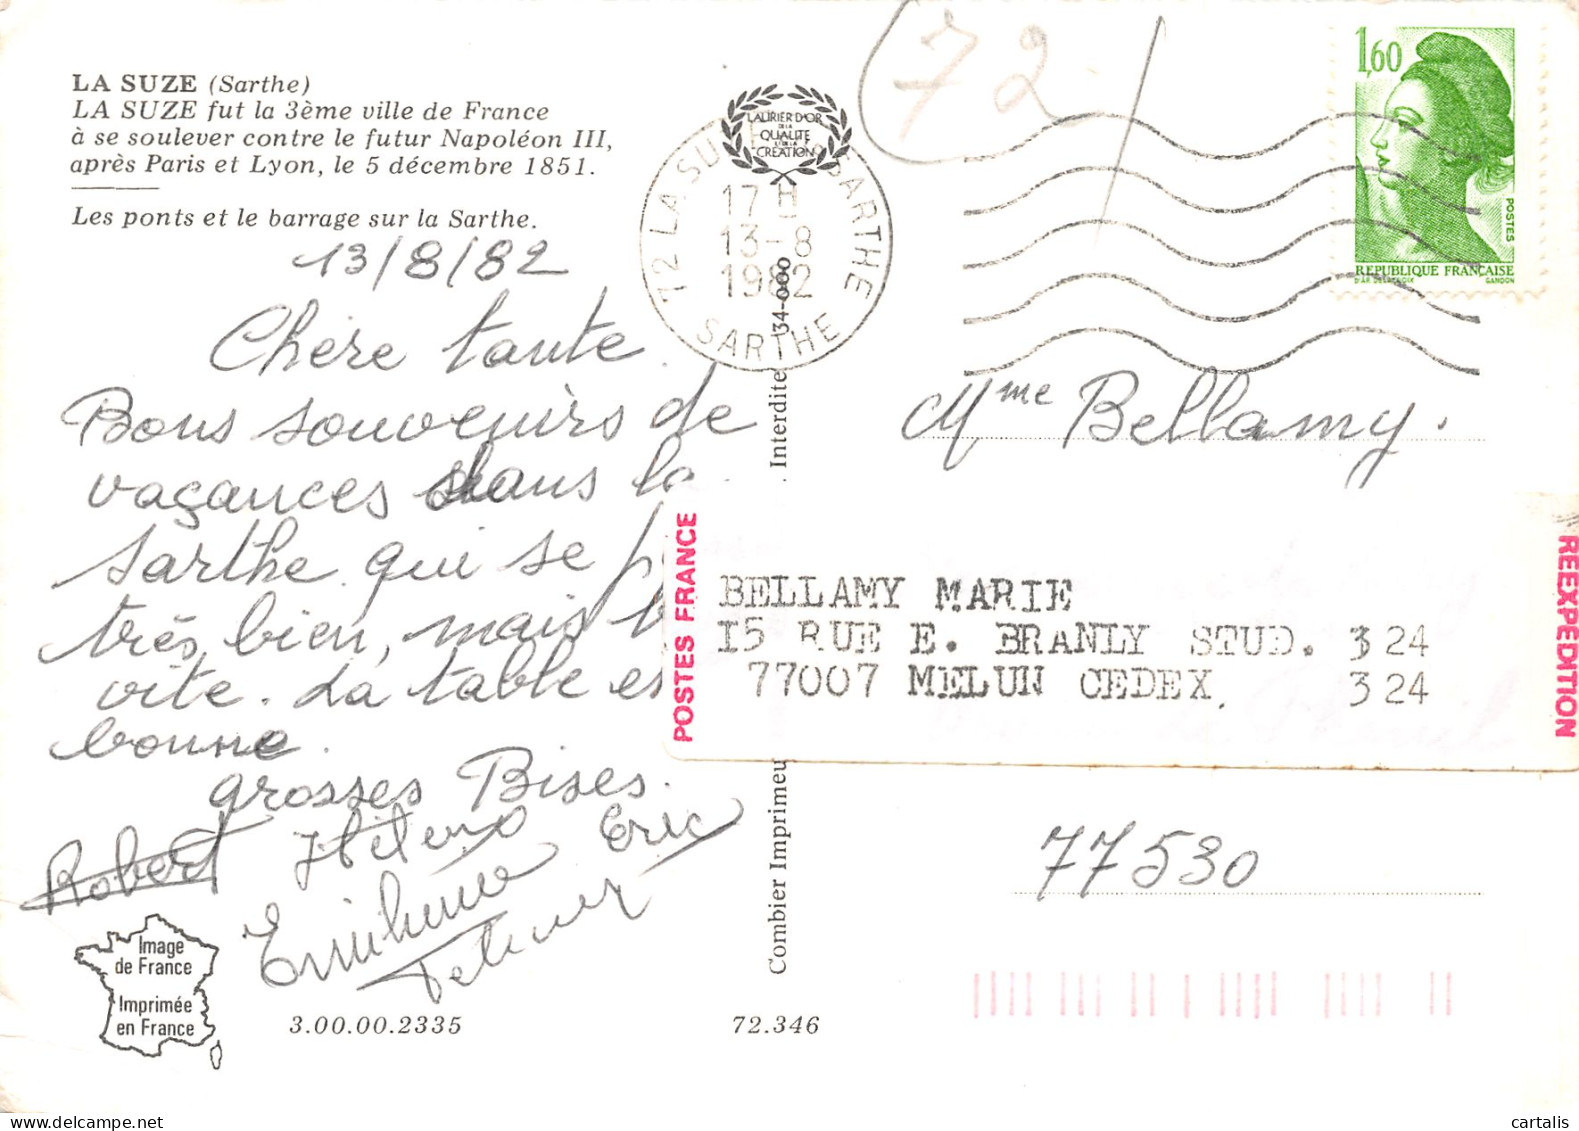 LA SUZE (Sarthe)
LA SUZE fut la 3ème ville de France
à se soulever contre le futur Napoléon III,
après Paris et Lyon, le 5 décembre 1851.
Les ponts et le barrage sur la Sarthe.
13/8/82
Chère tante.
Bons souvenirs de
vacances dans la
Sarthe qui se p
très bien, mais
vite. La table es
bonne.
grosses Bises.
Robert Hélène Eric
72
LAURIER D'OR
DE LA
QUALITE
CREATION
72 LA SUZE SARTHE
17 H
13-8
1982
SARTHE
34-000
Interdite
Combier Imprimeu
1,60
POSTES
REPUBLIQUE FRANÇAISE
D'AP. DELACROIX GANDON
Mme Bellamy.
POSTES FRANCE
BELLAMY MARIE
15 RUE E. BRANLY STUD. 324
77007 MELUN CEDEX. 324
REEXPEDITION
77530
Image
de France
Imprimée
en France
3.00.00.2335
72.346
cartalis